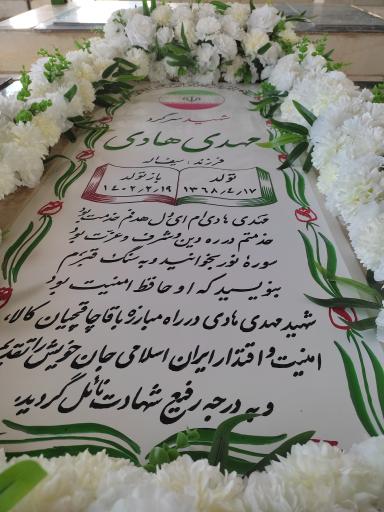 شهید سرگرد
مهدی هادی
فرزند: سیف‌اله
تولد
۱۳۶۸/۴/۱۷
باز تولد
۱۴۰۲/۲/۱۹
مهدی هادی‌ام ای ال هدفم خدمت بود
خدمتم در ره دین و شرف و عزت بود
سورهٔ نور بخوانید و به سنگ قبرم
بنویسید که او حافظ امنیت بود
شهید مهدی هادی در راه مبارزه با قاچاقچیان کالا،
امنیت و اقتدار ایران اسلامی جان خویش را تقدیم
و به درجه رفیع شهادت نائل گردید.